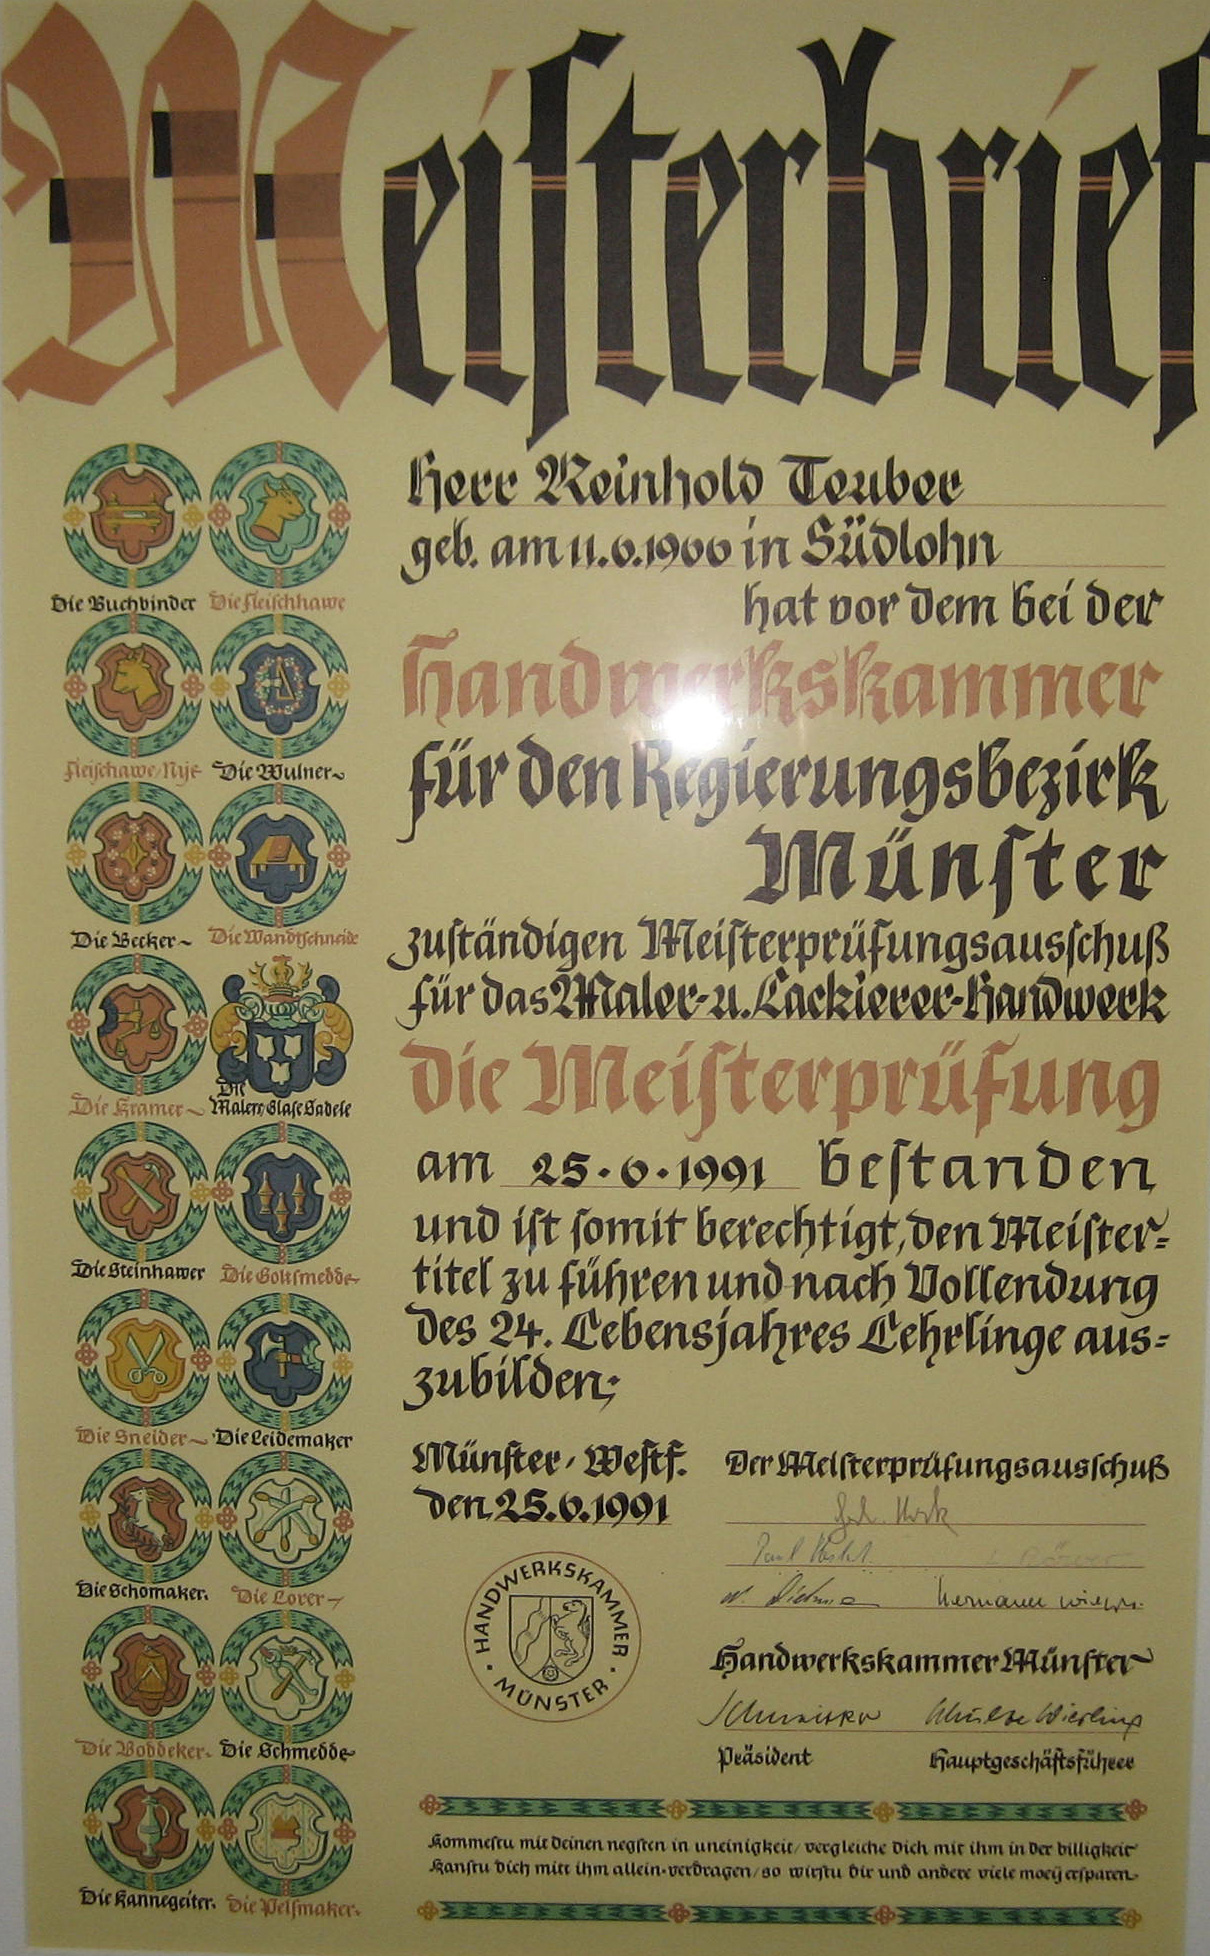 Meisterbrief
Herr Reinhold Teuber
geb. am 11.6.1966 in Südlohn
hat vor dem bei der
Handwerkskammer
für den Regierungsbezirk
Münster
zuständigen Meisterprüfungsausschuß
für das Maler- u. Lackierer-Handwerk
die Meisterprüfung
am 25.6.1991 bestanden
und ist somit berechtigt, den Meister=
titel zu führen und nach Vollendung
des 24. Lebensjahres Lehrlinge aus=
zubilden.
Münster/Westf.
den 25.6.1991
Der Meisterprüfungsausschuß
HANDWERKSKAMMER
· MÜNSTER ·
Handwerkskammer Münster
Präsident
Hauptgeschäftsführer
Kommestu mit deinen negsten in uneinigkeit/vergleiche dich mit ihm in der billigkeit
Kanstu dich mitt ihm allein verdragen/so wirstu dir und andere viele moeij ersparen.
Die Buchbinder
Die Fleischhawe
Fleischawe/Nije
Die Wulner~
Die Becker~
Die Wandtschneide
Die Kramer~
Die
Maler/Glase Sadele
Die Steinhawer
Die Goltsmedde~
Die Sneider~
Die Leidemaker
Die Schomaker.
Die Lorer~
Die Boddeker.
Die Schmedde~
Die Kannegeiter.
Die Pelsmaker.